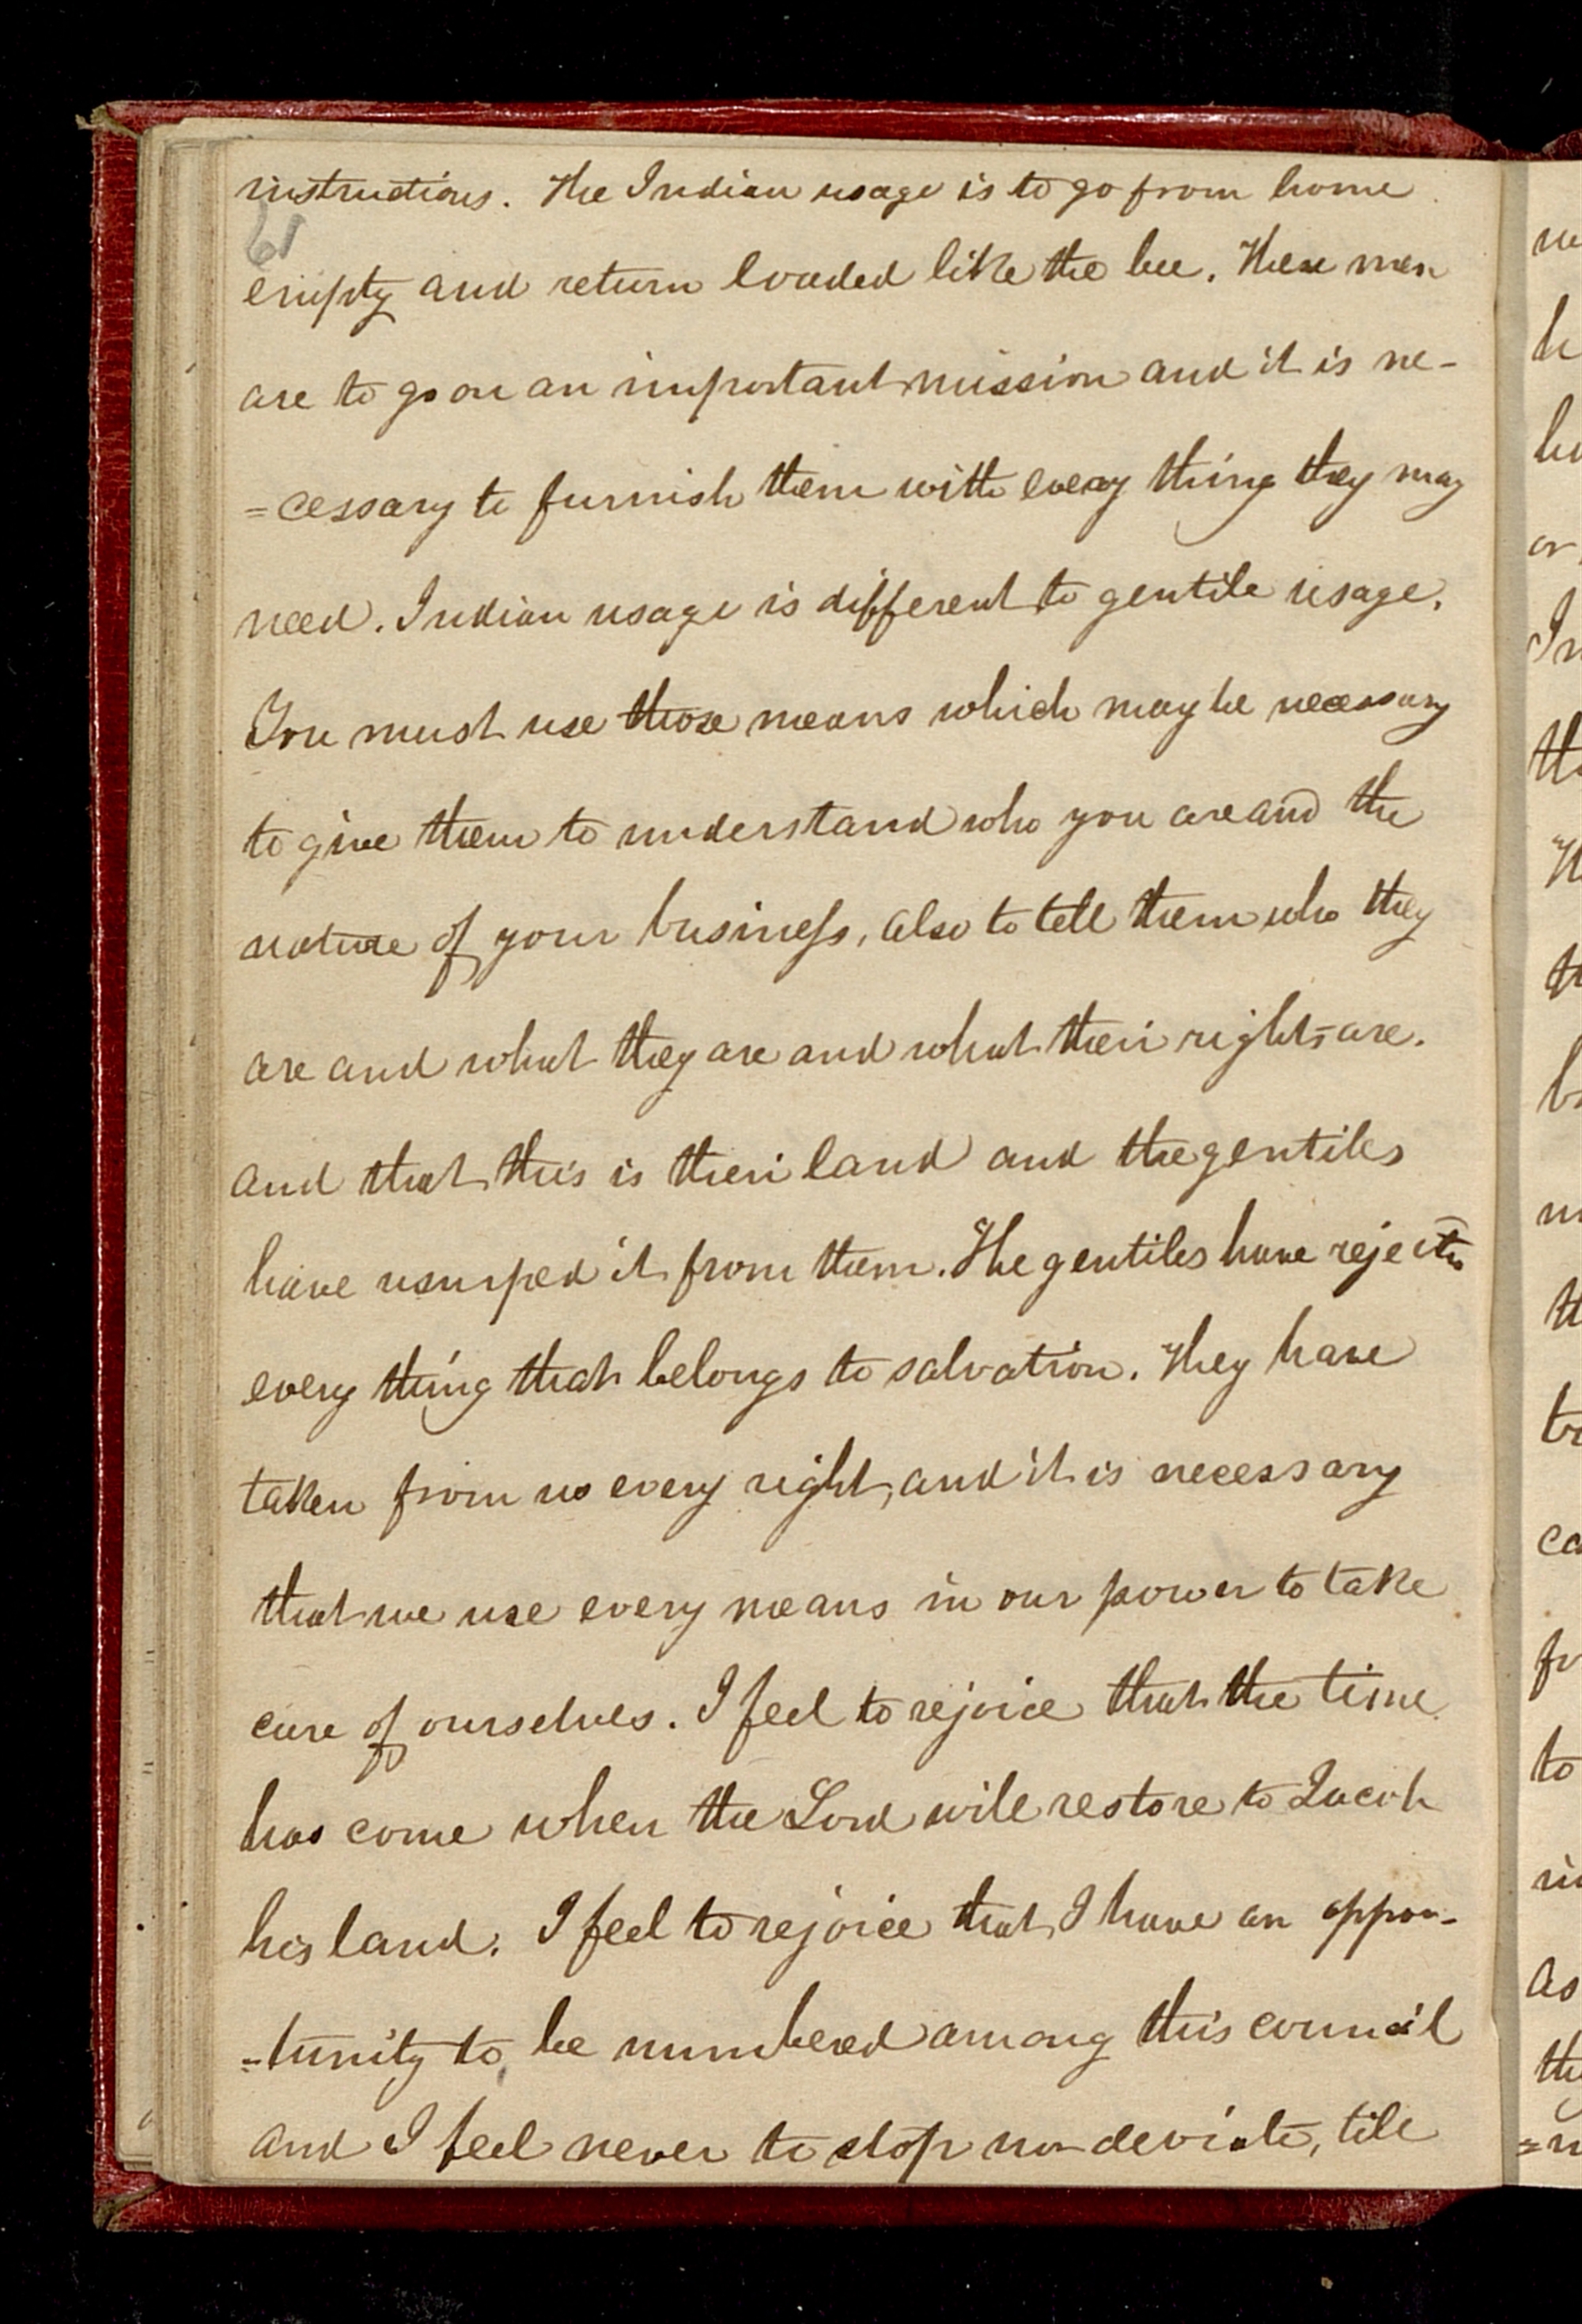 instructions. The Indian usage is to go from home
61
empty and return loaded like the bee. These men
are to go on an important mission and it is ne-
=cessary to furnish them with every thing they may
need. Indian usage is different to gentile usage.
You must use those means which may be necessary
to give them to understand who you are and the
nature of your business, also to tell them who they
are and what they are and what their rights are.
and that this is their land and the gentiles
have usurped it from them. The gentiles have rejected
every thing that belongs to salvation. They have
taken from us every right, and it is necessary
that we use every means in our power to take
care of ourselves. I feel to rejoice that the time
has come when the Lord will restore to Jacob
his land. I feel to rejoice that I have an oppor-
=tunity to be numbered among this council
and I feel never to stop nor deviate, till